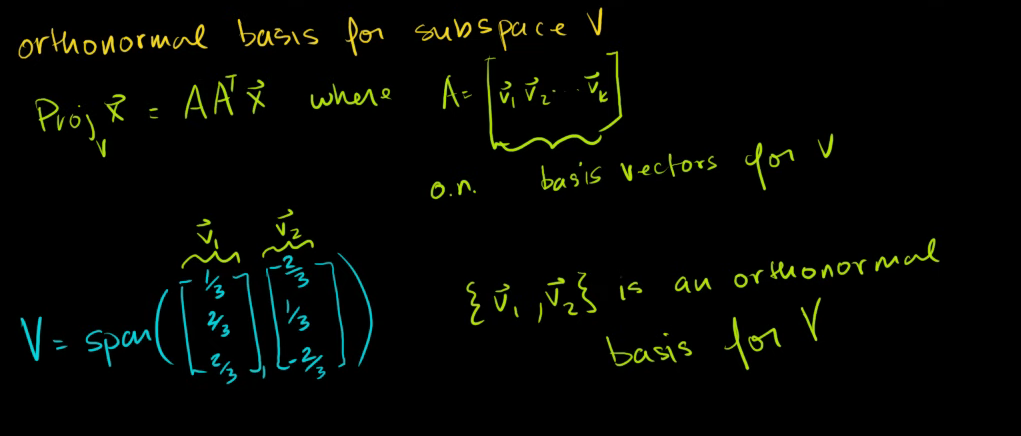 orthonormal basis for subspace V
Proj_V x⃗ = AAᵀx⃗ where A = [v⃗₁ v⃗₂ ... v⃗ₖ]
o.n. basis vectors for V
v⃗₁ v⃗₂
V = span([1/3 2/3 2/3], [2/3 1/3 -2/3])
{v⃗₁, v⃗₂} is an orthonormal
basis for V